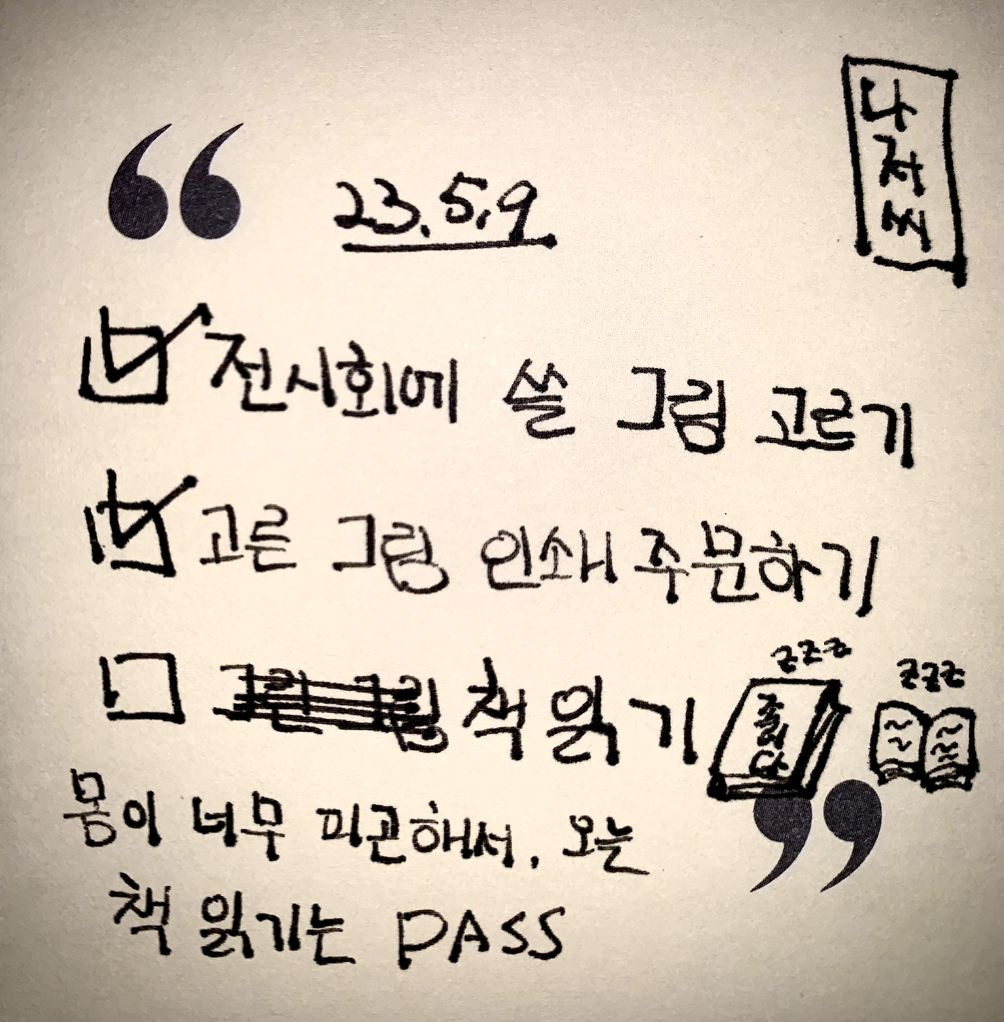 나저씨
23.5.9
전시회에 쓸 그림 고르기
고른 그림 인쇄 주문하기
책 읽기
zzz
zzz
졸리다
몸이 너무 피곤해서, 오늘
책 읽기는 PASS